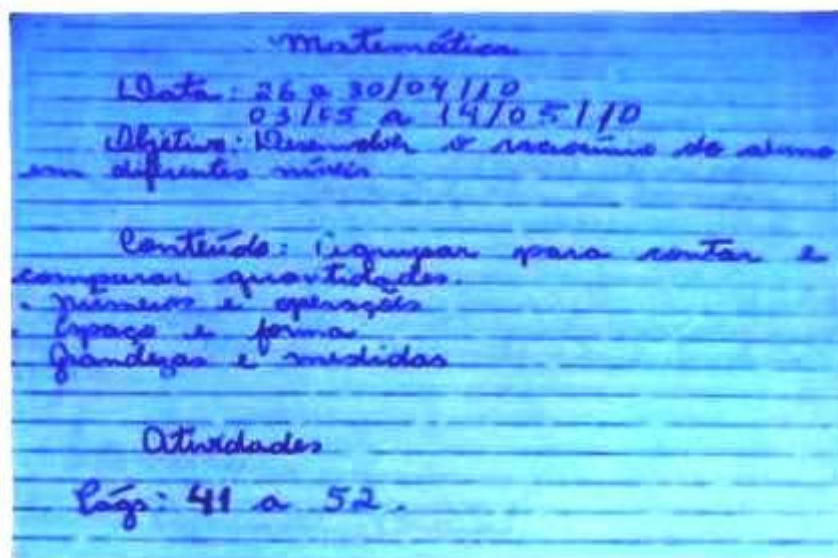 Matemática
Data: 26 a 30/04/10
03/05 a 14/05/10
Objetivo: Desenvolver o raciocínio do aluno
em diferentes níveis
Conteúdo: Agrupar para contar e
comparar quantidades.
. Números e operações
. Espaço e forma
. Grandezas e medidas
Atividades
Págs: 41 a 52.